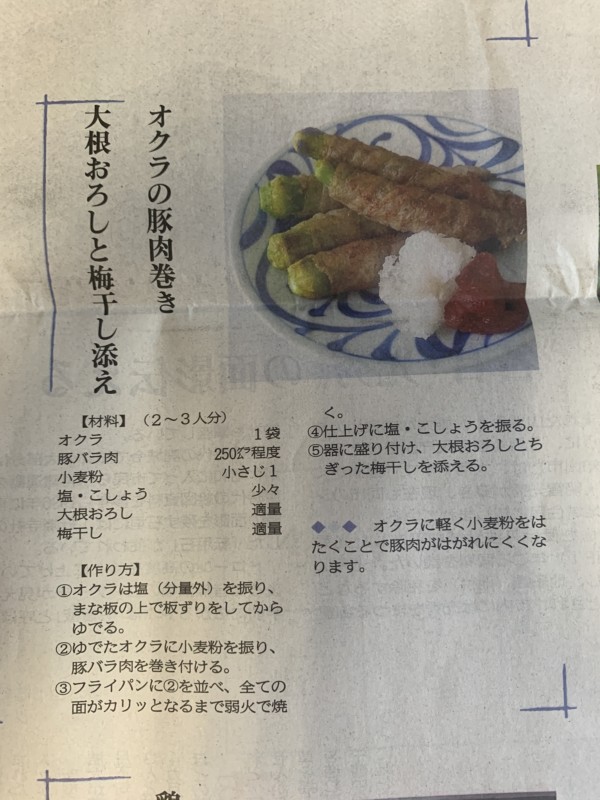 オクラの豚肉巻き
大根おろしと梅干し添え
【材料】（２～３人分）
オクラ　１袋
豚バラ肉　250㌘程度
小麦粉　小さじ１
塩・こしょう　少々
大根おろし　適量
梅干し　適量
【作り方】
①オクラは塩（分量外）を振り、
まな板の上で板ずりをしてから
ゆでる。
②ゆでたオクラに小麦粉を振り、
豚バラ肉を巻き付ける。
③フライパンに②を並べ、全ての
面がカリッとなるまで弱火で焼
く。
④仕上げに塩・こしょうを振る。
⑤器に盛り付け、大根おろしとち
ぎった梅干しを添える。
◆　◆　オクラに軽く小麦粉をは
たくことで豚肉がはがれにくくな
ります。